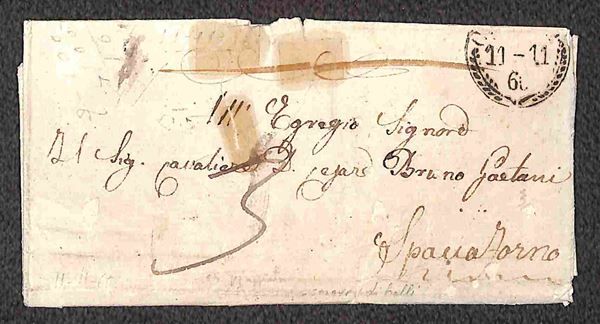 11-11
60
All' Egregio Signore
Il Sig. Cavaliere D. Cesare Bruno Gaetani
Spaccaforno
11-11-60